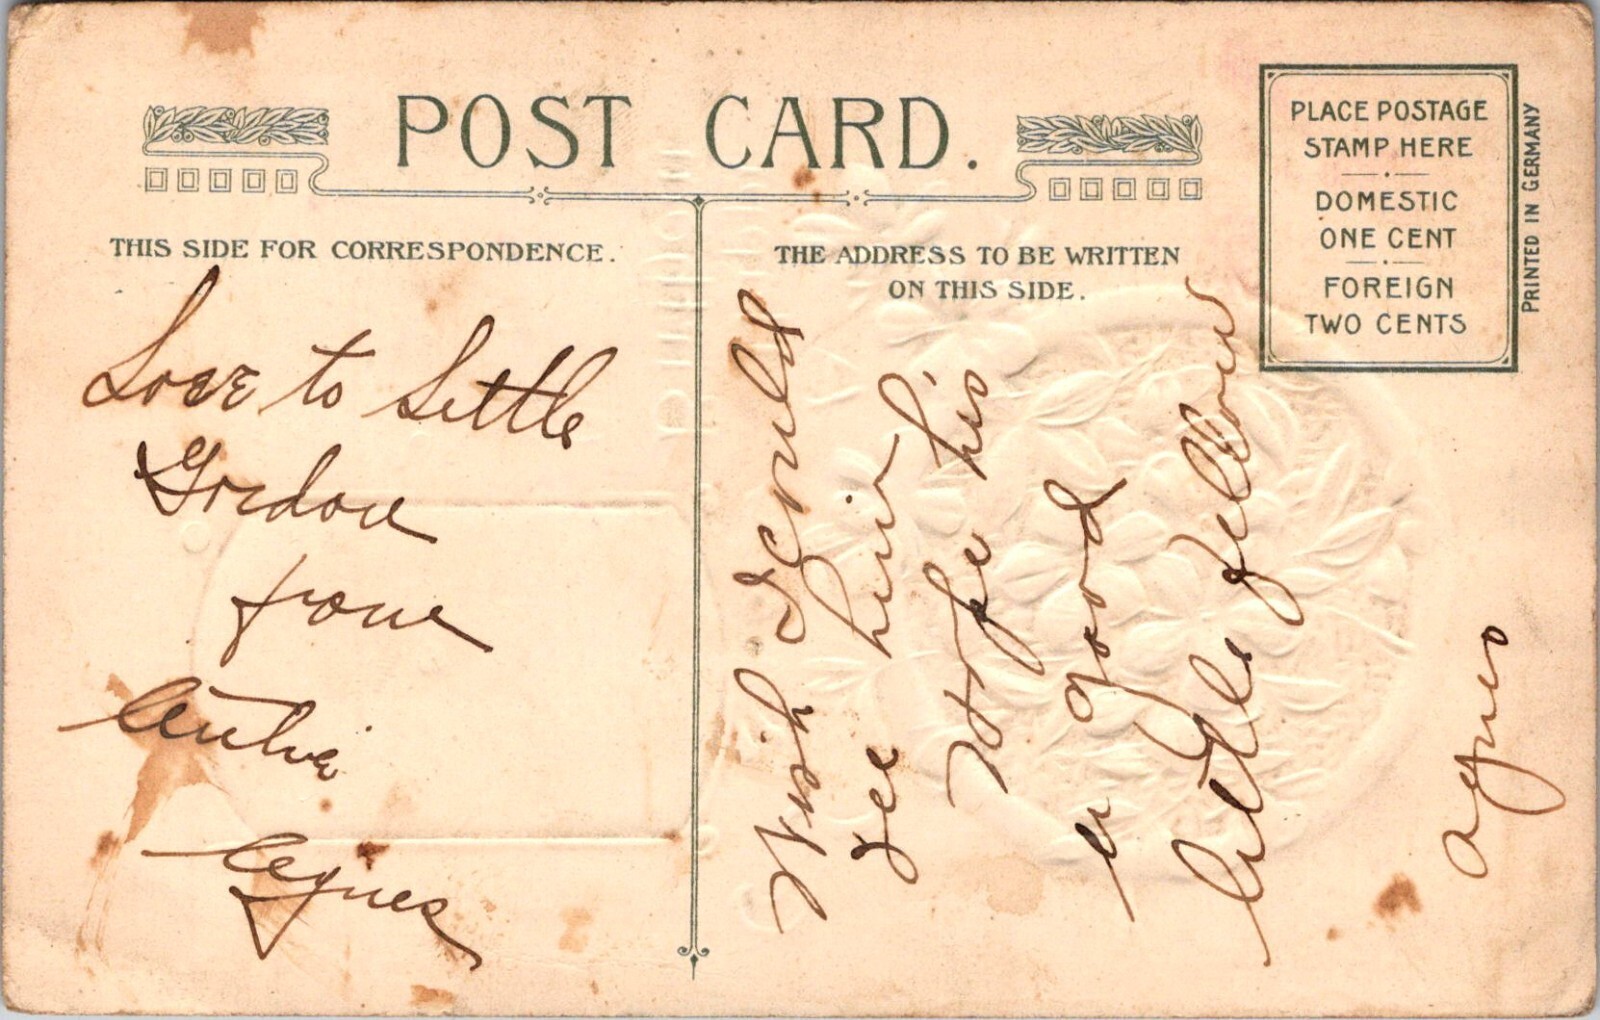 POST CARD.
THIS SIDE FOR CORRESPONDENCE.
THE ADDRESS TO BE WRITTEN
ON THIS SIDE.
PLACE POSTAGE
STAMP HERE
DOMESTIC
ONE CENT
FOREIGN
TWO CENTS
PRINTED IN GERMANY
Love to Little
Gordon
from
Agnes
Wish I could
see him
Hope his
a good
little fellow
Agnes